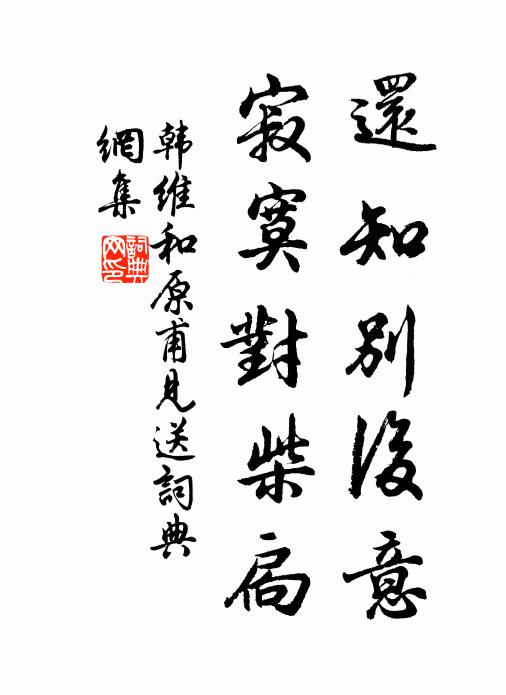 還知別後意
寂寞對柴扃
韩维和原甫见送詞典
網集
詞典網印